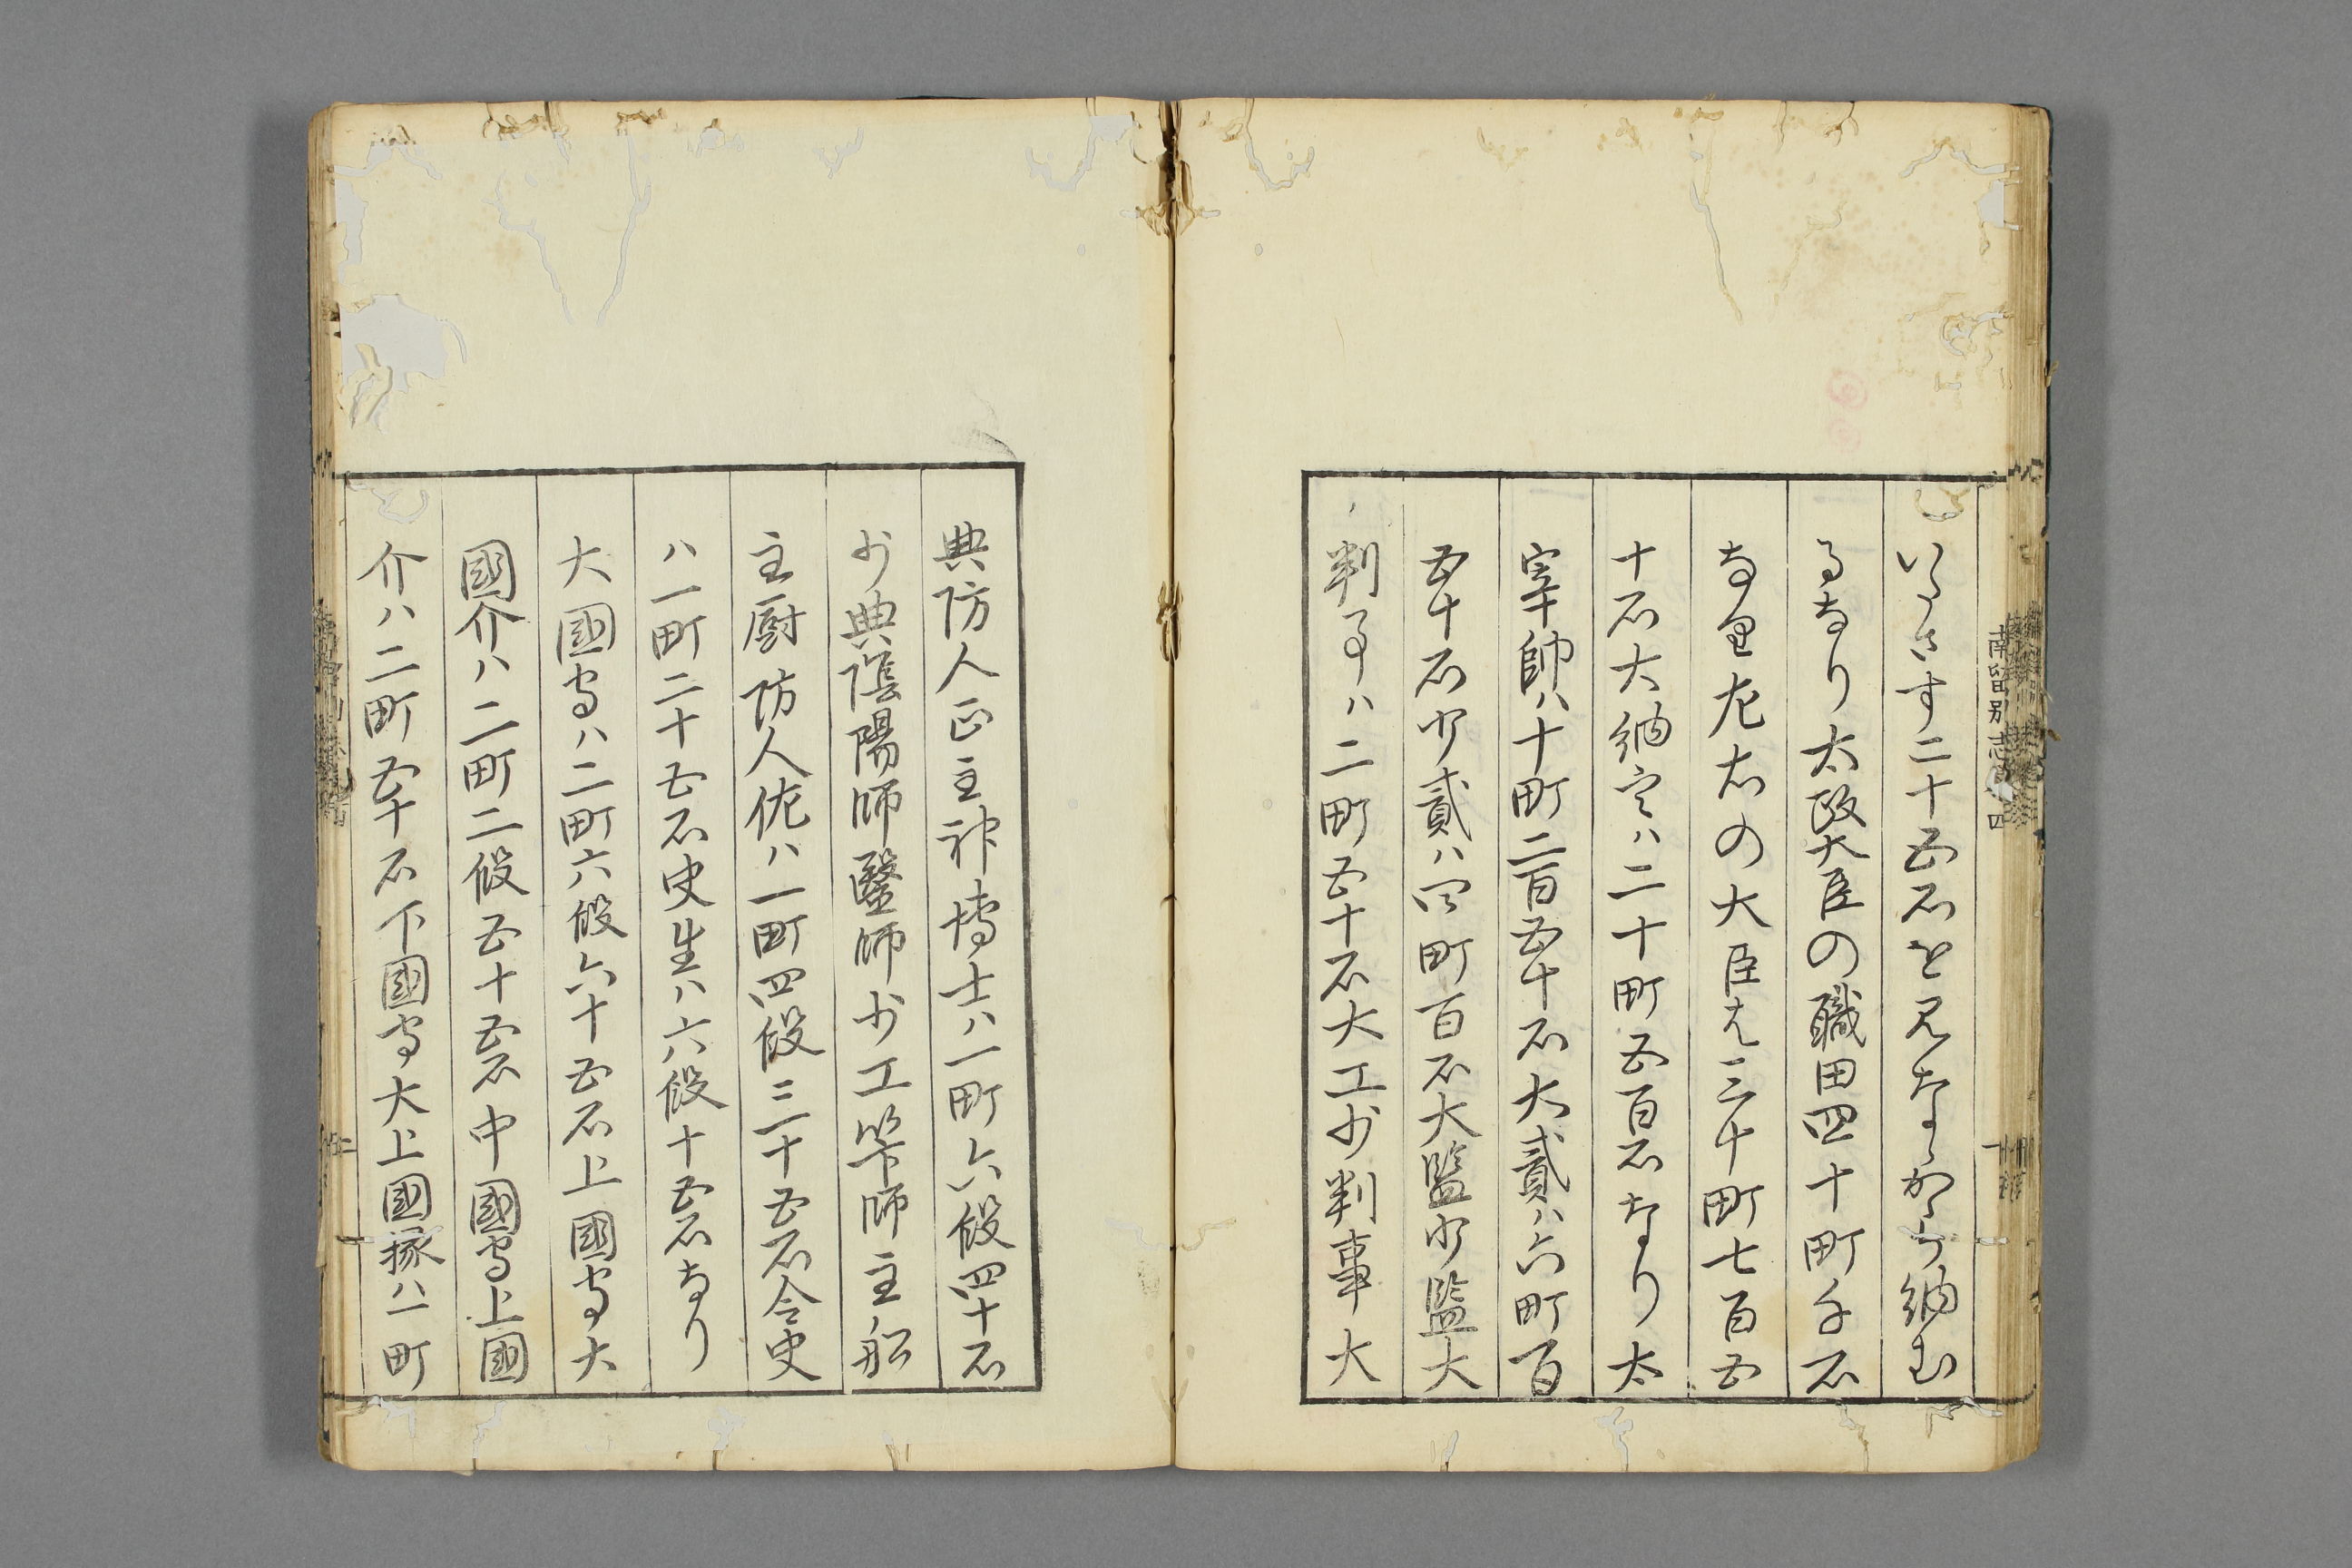 いたさす二十五石を見なしから納む
るなり太政大臣の職田四十町千石
なり左右の大臣は三十町七百五
十石大納言ハ二十町五百石なり太
宰帥ハ十町二百五十石大貳ハ六町百
五十石少貳ハ四町百石大監少監大
判事ハ二町五十石大工少判事大
典防人正主神博士ハ一町六段四十石
少典陰陽師醫師少工筭師主船
主厨防人佑ハ一町四段三十五石令史
ハ一町二十五石史生ハ六段十五石なり
大國守ハ二町六段六十五石上國守大
國介ハ二町二段五十五石中國守上國
介ハ二町五十石下國守大上國掾ハ一町
南留别志 四